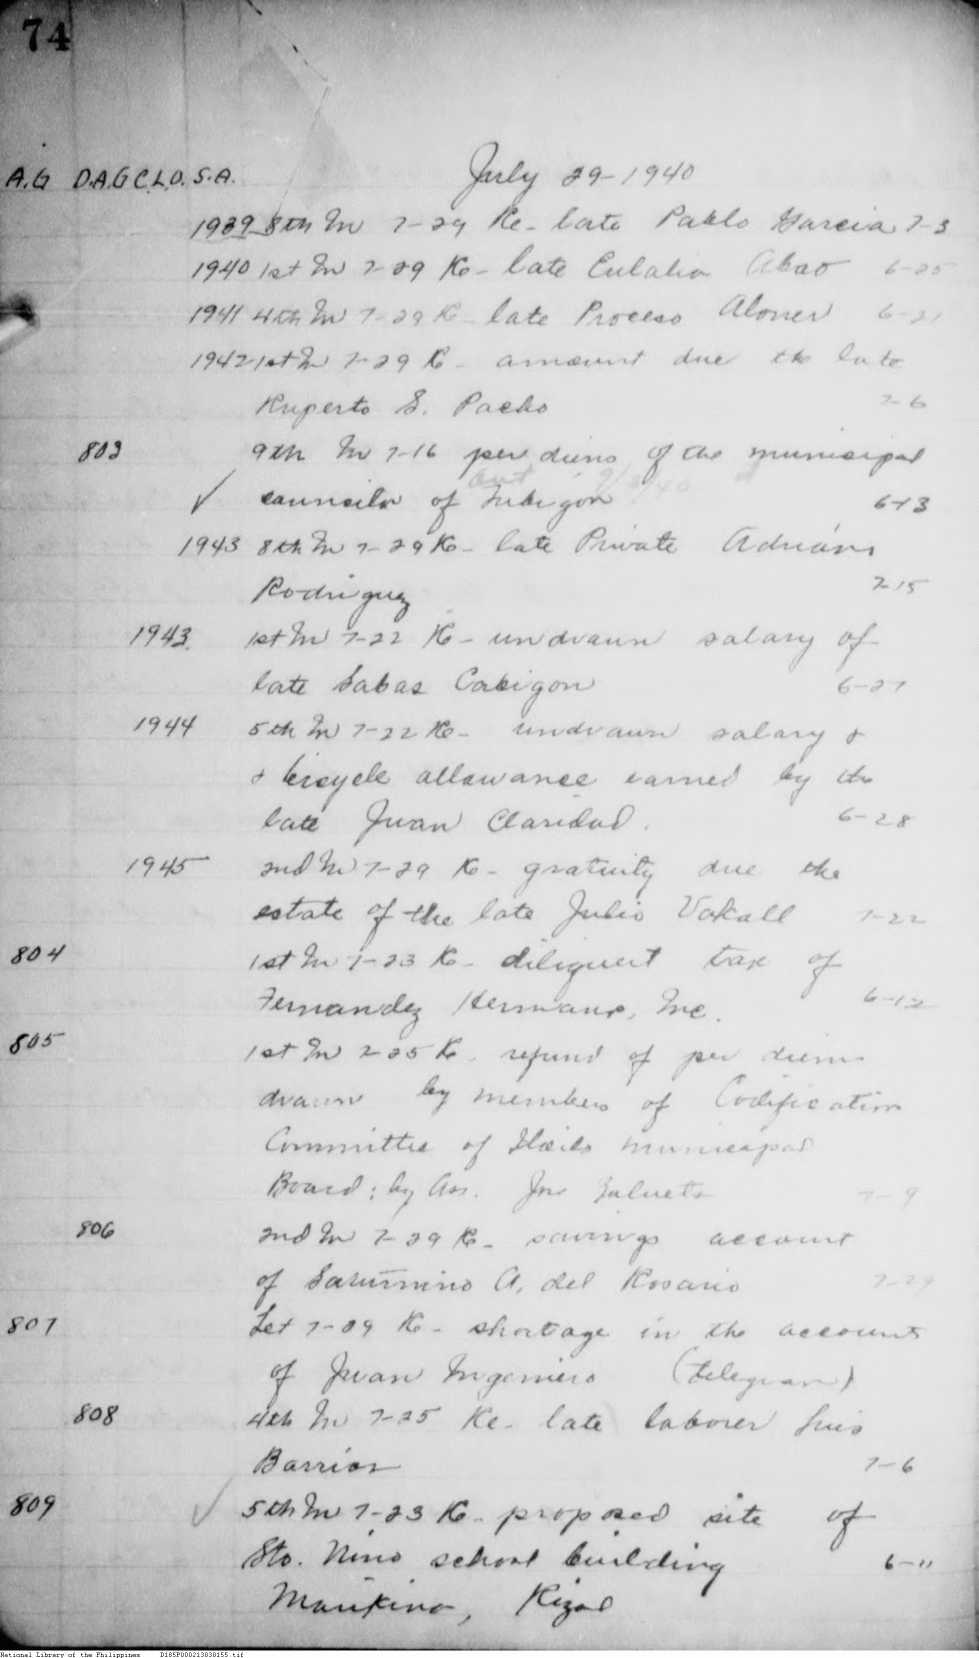 74
A.G D.A.G C.L.O. S.A. July 29-1940
1939 8th In 7-29 Re- late Pablo Garcia 7-3
1940 1st In 7-29 Re- late Eulalia Abao 6-25
1941 4th In 7-29 Re- late Proceso Aloner 6-21
1942 1st In 7-29 Re- amount due the late
Ruperto S. Pacho 7-6
803 9th In 7-16 per diems of the municipal
✓ councilor of Tubigon 6-13
1943 8th In 7-29 Re- late Private Adriano
Rodriguez 7-15
1943. 1st In 7-22 Re- undrawn salary of
late Sabas Cabigon 6-27
1944 5th In 7-22 Re- undrawn salary &
& bicycle allowance earned by the
late Juan Claridad. 6-28
1945 2nd In 7-29 Re- gratuity due the
estate of the late Julio Vakall 7-22
804 1st In 7-23 Re- diliquent tax of
Fernandez Hermanos, Inc. 6-12
805 1st In 7-25 Re- refund of per diems
drawn by members of Codification
Committee of Iloilo municipal
Board; by 7-9
806 2nd In 7-29 Re- savings account
of Saturnino A. del Rosario 7-29
807 Let 7-29 Re- shortage in the account
of Juan Ingeniero (telegram)
808 4th In 7-25 Re- late laborer Luis
Barrios 7-6
809 ✓ 5th In 7-23 Re- proposed site of
Sto. Nino school building 6-11
Marikina, Rizal
National Library of the Philippines D185P000213838155.tif